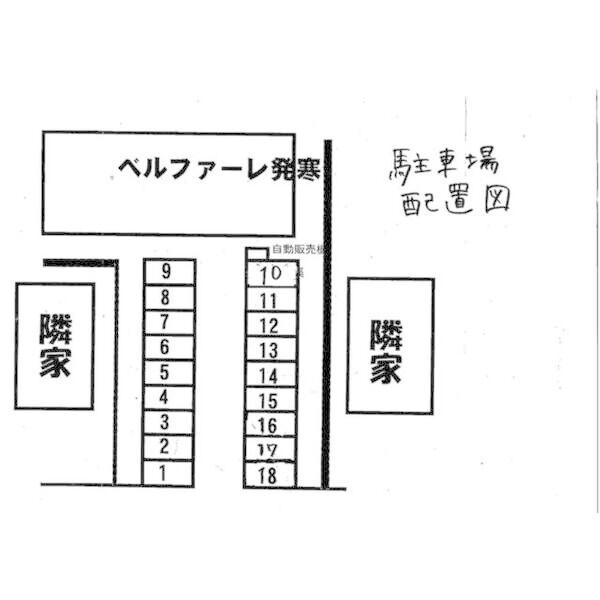 ベルファーレ発寒
駐車場
配置図
自動販売機
9
8
7
6
5
4
3
2
1
10
11
12
13
14
15
16
17
18
隣家
隣家